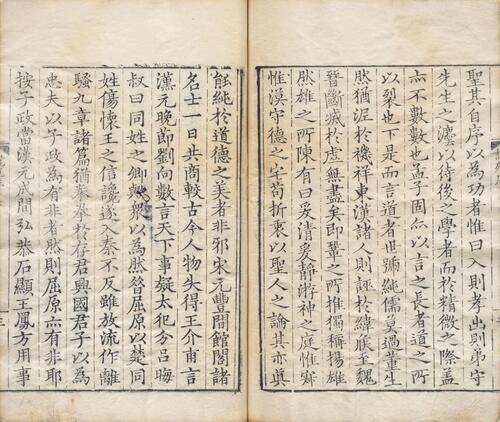 聖其自序以為功者惟曰入則孝出則弟守
先生之道以待後之學者而於精微之際蓋
亦不數數也孟子固亦以言之長者道之所
以裂也下是而言道者世號純儒莫過董生
然猶泥於禨祥東漢諸人則誣於緯候至魏
晉斷滅於虛無盡矣即鞏之所推獨稱揚雄
然雄之所陳有曰爰清爰靜游神之庭惟寂
惟漠守德之宅苟折衷以聖人之論其亦眞
能純於道德之美者非邪宋元豐間館閣諸
名士一日共商較古今人物失得王介甫言
漢元晚節劉向數言天下事疑太犯分呂晦
叔曰同姓之卿與眾以為然昝屈原以楚同
姓傷懷王之信讒遂入秦不反雖放流作離
騷九章諸篇猶拳拳於存君興國君子以為
忠夫以子政為有非者然則屈原亦有非耶
按子政當漢元成間弘恭石顯王鳳方用事
三